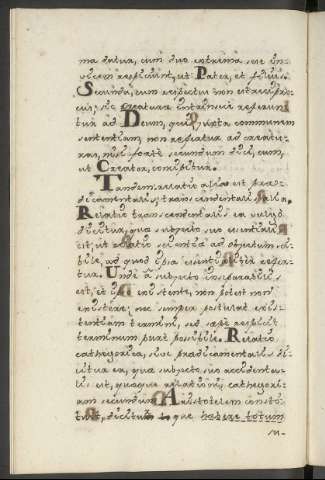 ma dulur, cum duo extrema sese in-
vicem respiciunt, ut Pater, et filius.
Secunda, cum respectus non est recipro-
cus; sic creatura intrinsice referun
tur ad Deum, qui juxta communem
sententiam non refertur ad creatu-
ras, nisi forte secundum dici, cum,
ut Creator, concipitur.
Tandem relatio alia est præ-
dicamentalis, transcendentalis alia.
Relatio transcendentalis ea vulgo
dicitur, quæ subjecto suo essentialis
est, ut relatio scientiæ ad objectum sci-
bile, ad quod ipsa essentialiter refer-
tur. Unde a subjecto inseparabilis
est, et ipso existente, non potest non
existere; nec semper postulat exis-
tentiam termini, sed sæpe respicit
terminum pure possibile. Relatio
cathegorica, sive prædicamentalis di-
citur ea, quæ subjecto suo accidenta-
lis est, quæque relationis cathegori-
am secundum Aristotelem consti-
tuit, diciturque habere totum
su-